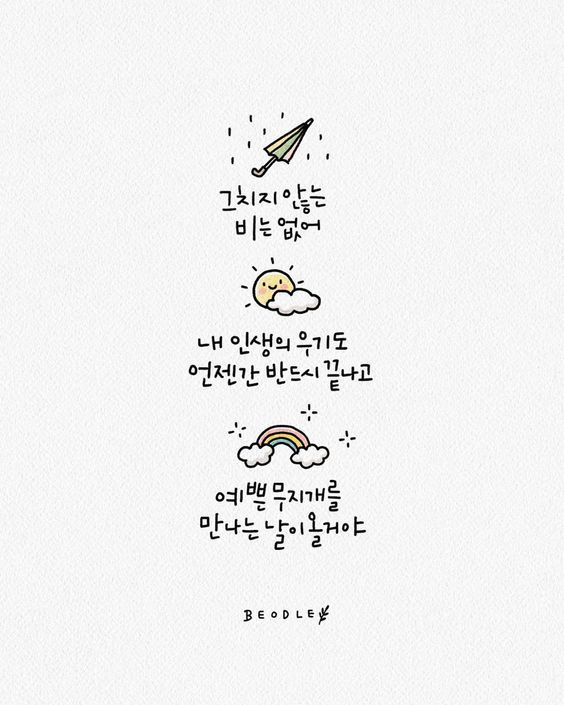 그치지 않는
비는 없어
내 인생의 우기도
언젠간 반드시 끝나고
예쁜 무지개를
만나는 날이 올거야
BEODLE